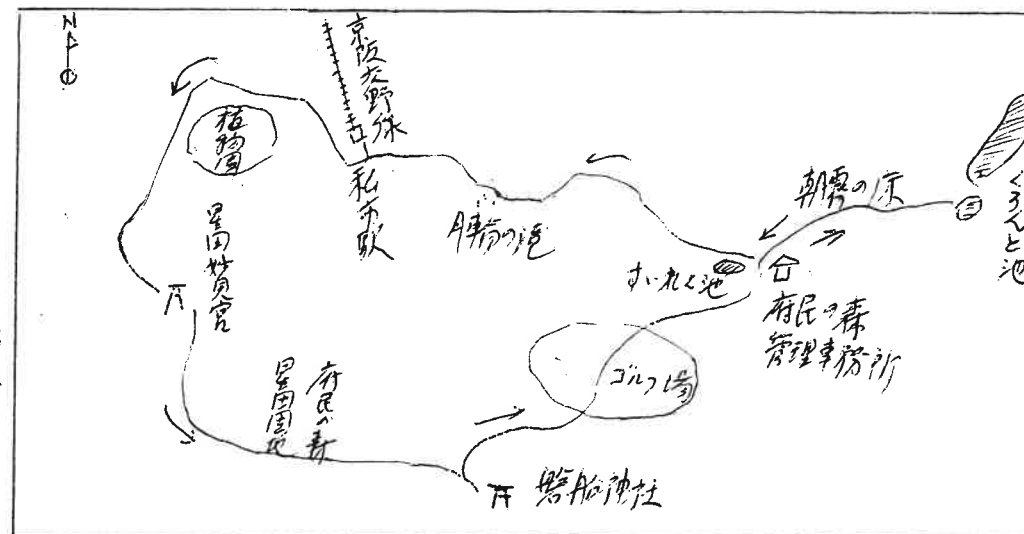 N
京阪交野線
植物園
私市駅
月輪の滝
朝霧の
くろんど池
すいれん池
星田妙見宮
府民の森
管理事務所
ゴルフ場
府民の森
星田園地
磐船神社